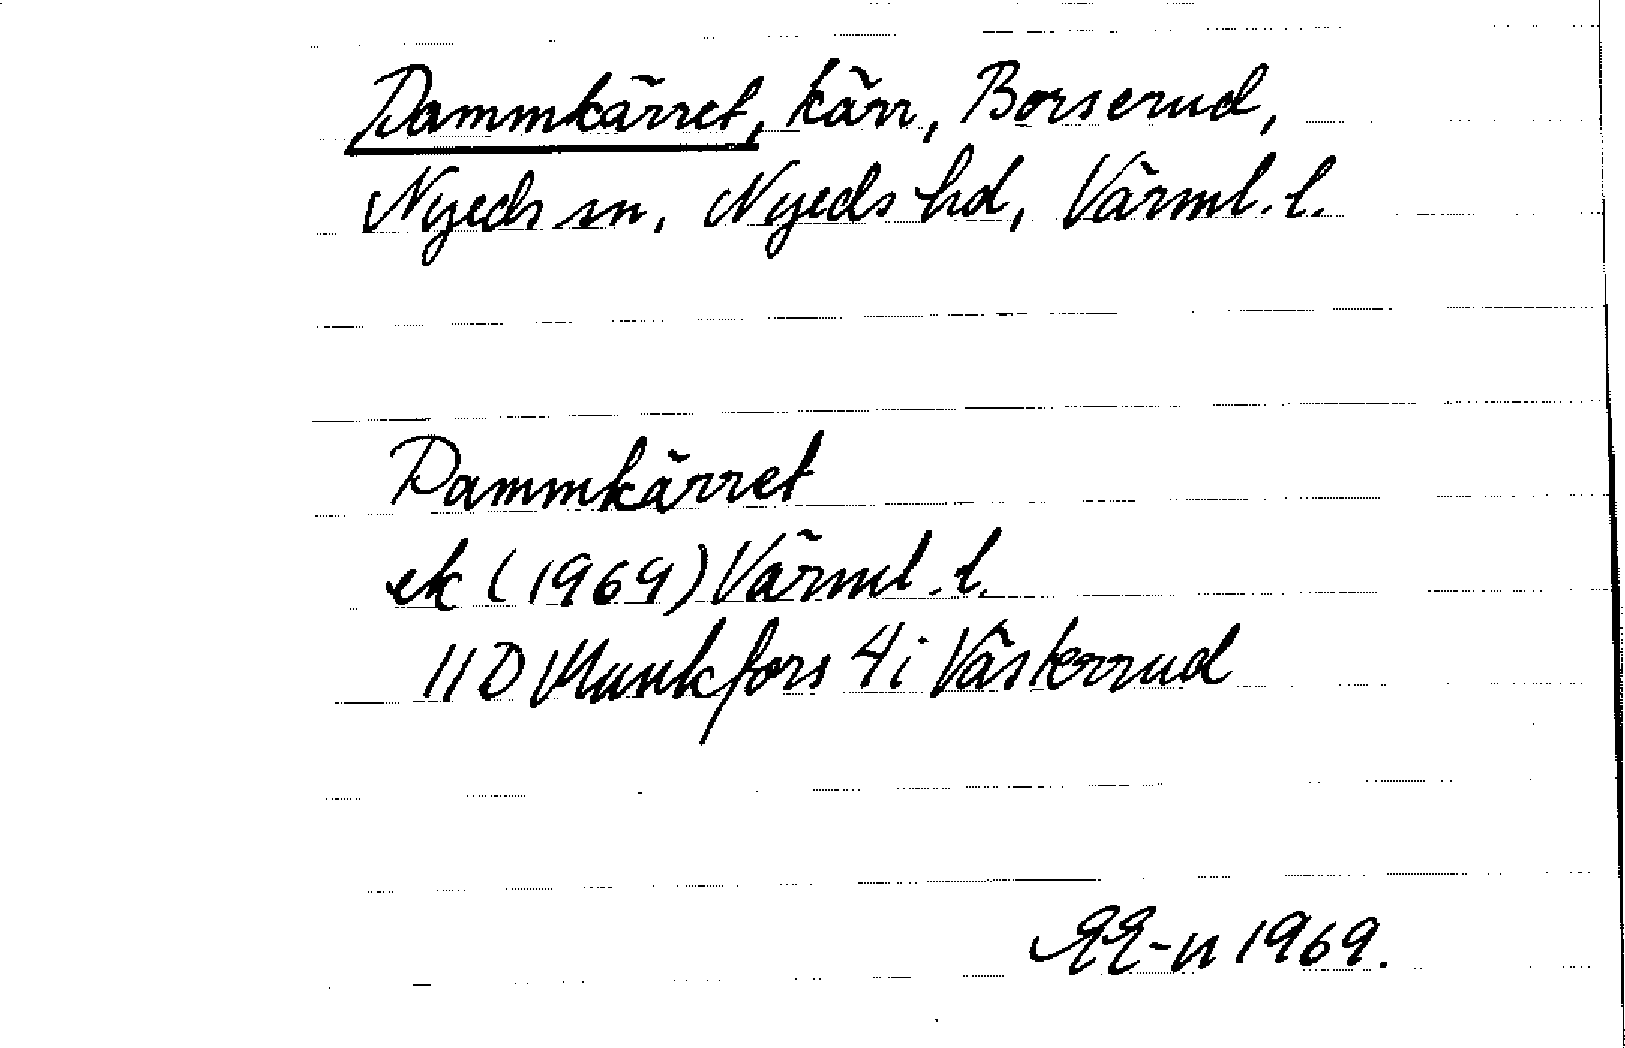 Dammkärret, kärr, Borserud,
Nyeds sn, Nyeds hd, Värml. l.
Dammkärret
ek (1969) Värml. l.
11D Munkfors 4i Västerrud
EE-n 1969.